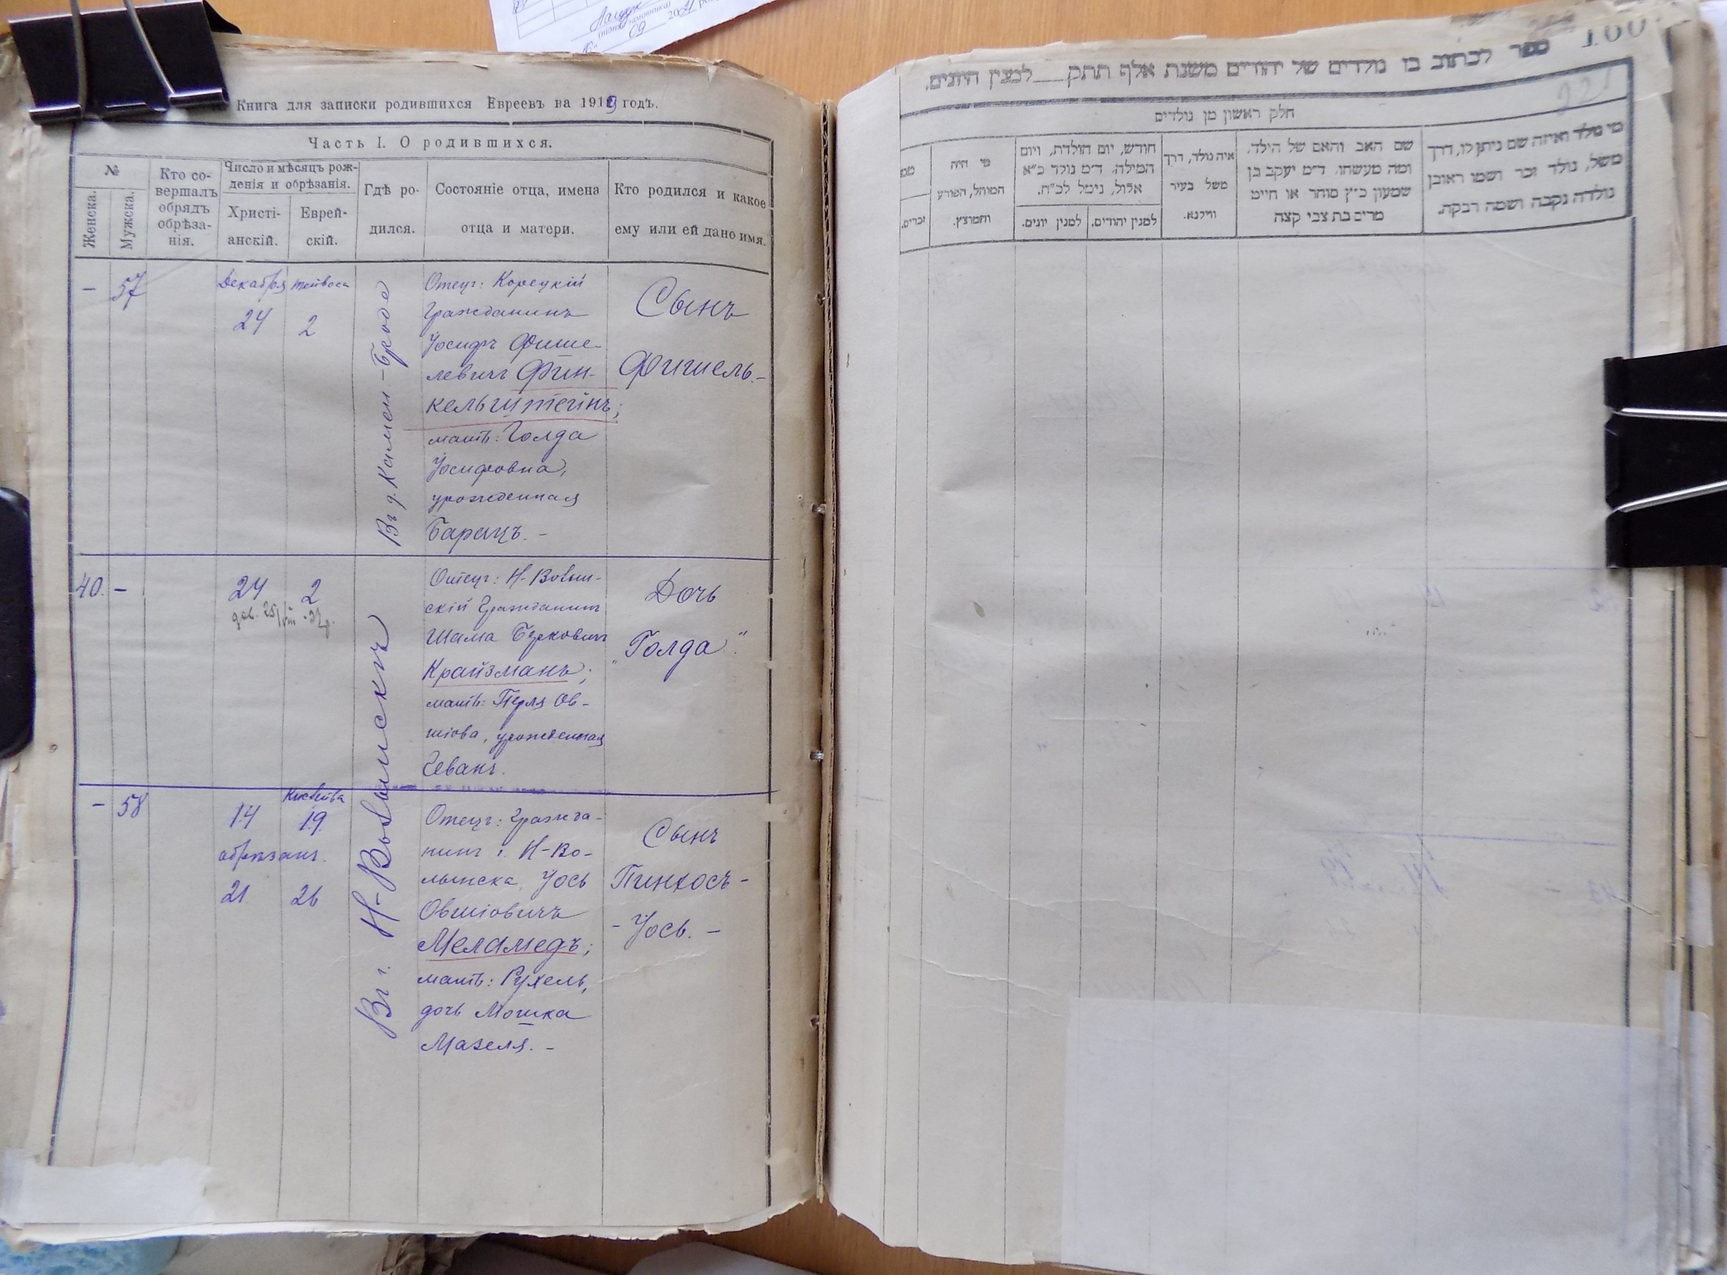 Книга для записки родившихся Евреевъ на 1919 годъ.
Часть I. О родившихся.
№
Женска.
Мужска.
Кто со-
вершалъ
обрядъ
обрѣза-
нія.
Число и мѣсяцъ рож-
денія и обрѣзанія.
Христі-
анскій.
Еврей-
скій.
Гдѣ ро-
дился.
Состояніе отца, имена
отца и матери.
Кто родился и какое
ему или ей дано имя.
– 57
Декабря
24 2
Отецъ: Корецкій
Гражданинъ
Іосифъ Фише-
левичъ Фин-
кельштейнъ;
мать: Голда
Іосифовна,
урожденная
Барацъ. –
Сынъ
Фишель. –
40. –
24 2
Отецъ: Н-Волын-
скій Гражданинъ
Шама Берковичъ
Крайзманъ;
мать: Перля Ов-
шіова, урожденная
Дочь
"Голда".
– 58
14 19
обрѣзанъ.
21 26
Въ г. Н-Волынскѣ
Отецъ: Гражда-
нинъ г. Н-Во-
лынска, Іось
Овшіовичъ
Меламедъ;
мать: Рухель,
дочь Мошка
Мазеля. –
Сынъ
Пинхосъ –
– Іось. –
160
ספר לכתוב בו נולדים של יהודים משנת אלף תתק למנין היונים.
חלק ראשון מן נולדים
מי נולד ואיזה שם ניתן לו, דרך
משל, נולד זכר ושמו ראובן
נולדה נקבה ושמה רבקה.
שם האב והאם של הילד,
ומה מעשהו. ד״מ יעקב בן
שמעון כ״ץ סוחר או חייט
מרים בת צבי קצה
איה נולד, דרך
משל בעיר
ווילנא.
חודש, יום הולדת, ויום
המילה. ד״מ נולד כ״א
אלול, נימל לכ״ח.
למנין יהודים.
למנין יונים.
מי היה
המוהל, הפורע
והמוצץ.
זכרים.